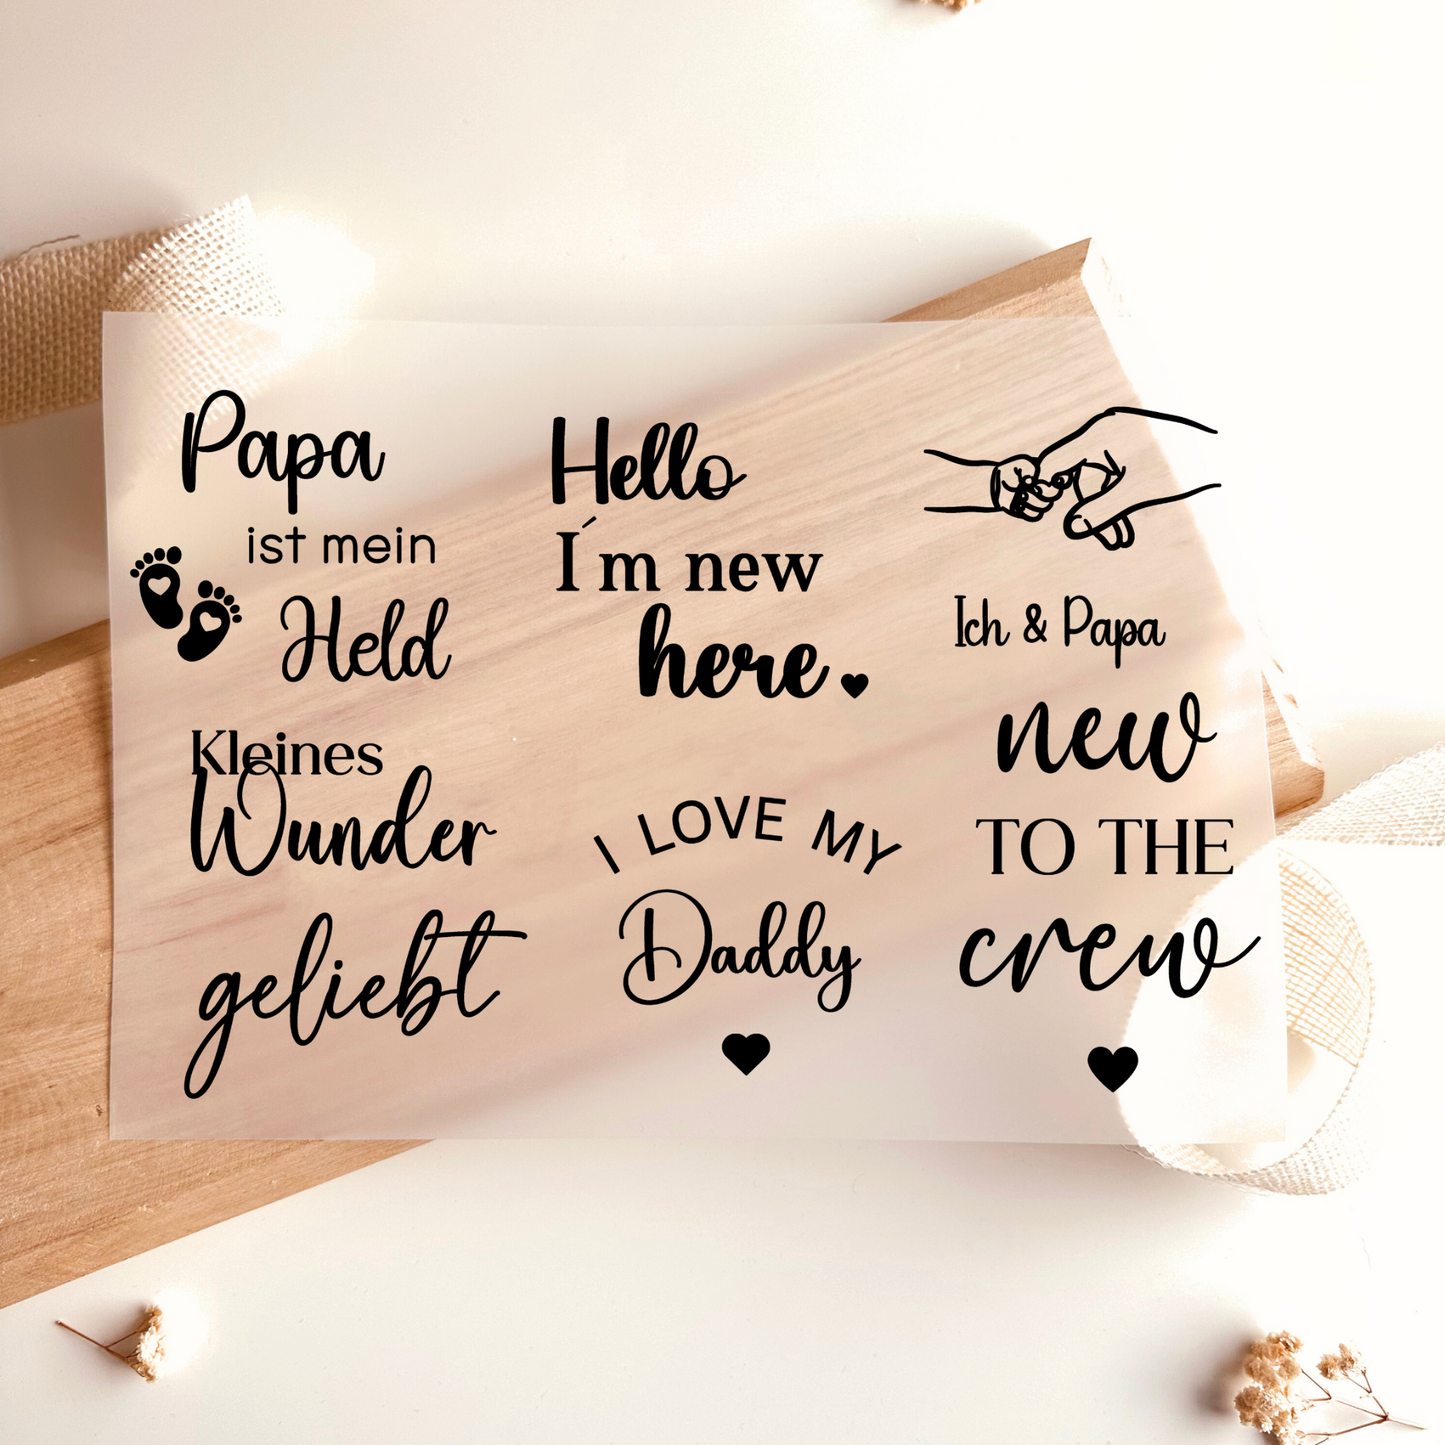 Papa
ist mein
Held
Hello
I´m new
here.
Ich & Papa
Kleines
Wunder
geliebt
I LOVE MY
Daddy
new
TO THE
crew